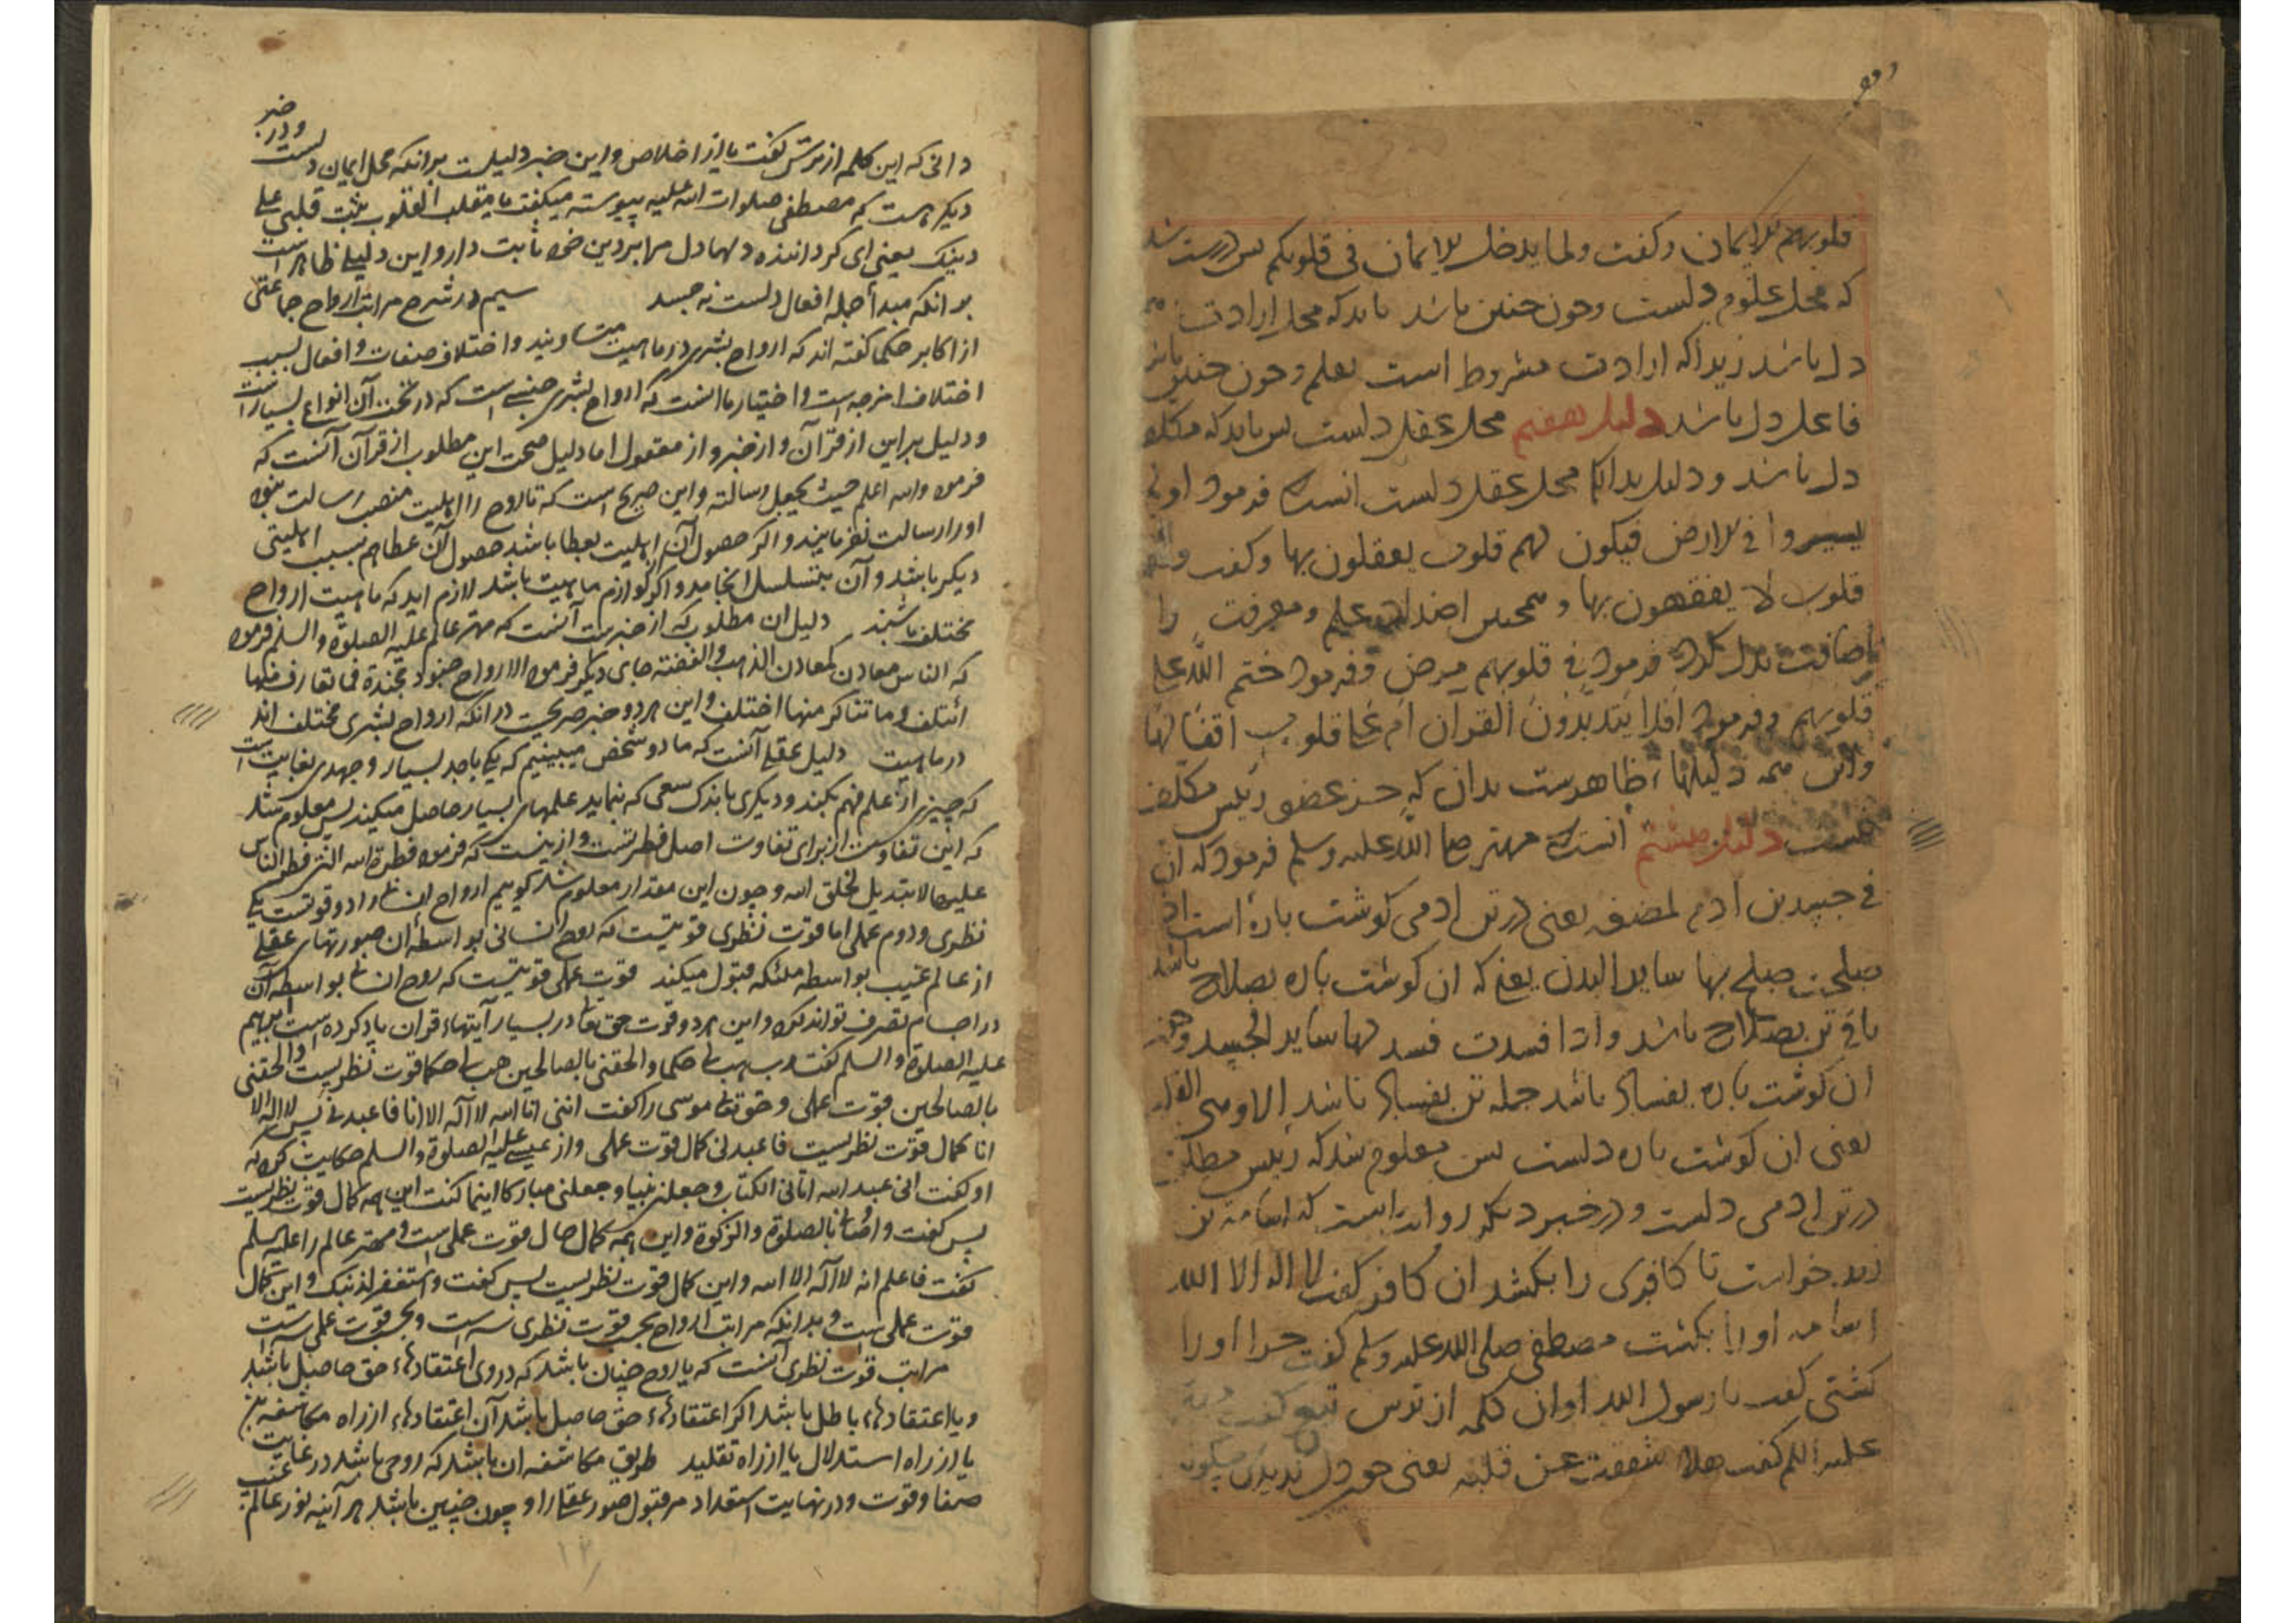 قلوبهم الایمان وکفت ولما یدخل الایمان فی قلوبکم بس درست شد
که محل علوم دلست وجون جنین باشد باید که محل ارادت هم
دل باشد زیراکه ارادت مشروط است بعلم وجون جنین باشد
فاعل دل باشد دلیل هفتم محل عقل دلست بس باید که مکلف
دل باشد و دلیل بدانک محل عقل دلست انست که فرمود اولم
یسیروا فی الارض فیکون لهم قلوب یعقلون بها وکفت
قلوب لا یفقهون بها و همجنین اضداد علم ومعرفت را
اضافت بدل کرد فرمود فی قلوبهم مرض وفرمود ختم الله علی
قلوبهم وفرمود افلا یتدبرون القران ام علی قلوب اقفالها
واین همه دلیلها ظاهرست بدان که جز عضو رییس مکلف
نیست دلیل هشتم انست که مهتر صلی الله علیه وسلم فرمود که ان
فی جسد بن ادم لمضغه یعنی در تن ادمی کوشت باره است اذا
صلحت صلح بها سایر البدن یعنی که ان کوشت باره بصلاح باشد
باقی تن بصلاح باشد واذا فسدت فسد لها سایر الجسد وجون
ان کوشت باره بفساد باشد جمله تن بفساد باشد الا وهی القلب
یعنی ان کوشت باره دلست بس معلوم شد که رییس مطلق
در تن ادمی دلست و در خبر دیکر روایتست که اسامه بن
زید خواست تا کافری را بکشد ان کافر کفت لا اله الا الله
اسامه اورا بکشت مصطفی صلی الله علیه وسلم کفت جرا اورا
کشتی کفت یا رسول الله او ان کلمه از ترس تیغ کفت
علیه السلم کفت هلا شققت عن قلبه یعنی جون دل ندیدی جکونه
ودر خبر
دانی که این کلمه از ترس کفت یا از اخلاص واین خبر دلیلست برانکه محل ایمان دلست
دیکر هست که مصطفی صلوات الله علیه پیوسته میکفت یا مقلب القلوب ثبت قلبی علی
دینک یعنی ای کرداننده دلها دل مرا بر دین خود ثابت دار واین دلیلی ظاهر است
بر انکه مبدأ جمله افعال دلست نه جسد سیم در شرح مراتب ارواح جماعتی
از اکابر حکما کفته اند که ارواح بشری در ماهیت متساویند و اختلاف صفات وافعال بسبب
اختلاف امزجه است واختیار ما انست که ارواح بشری جنسی است که در تحت آن انواع بسیار است
و دلیل بر این از قرآن و از خبر و از معقول اما دلیل صحت این مطلوب از قرآن آنست که
فرمود والله اعلم حیث یجعل رسالته و این صریح است که تا روح را اهلیت منصب رسالت نبود
اورا رسالت نفرمایند و اکر حصول آن اهلیت بعطا باشد حصول آن عطا هم بسبب اهلیتی
دیکر باشد و آن بتسلسل انجامد و اکر لوازم ماهیت باشد لازم اید که ماهیت ارواح
مختلف باشند دلیل ان مطلوب که از خبرست آنست که مهتر عالم علیه الصلوة والسلم فرمود
که الناس معادن کمعادن الذهب والفضة جای دیکر فرمود الارواح جنود مجندة فما تعارف منها
ائتلف وما تناکر منها اختلف و این هر دو خبر صریحست در آنکه ارواح بشری مختلف اند
در ماهیت دلیل عقلی آنست که ما دو شخص میبینیم که یکی با جد بسیار و جهدی بغایت است
که چیزی از علم فهم نکند و دیکری باندک سعی که بنماید علمهای بسیار حاصل میکند پس معلوم شد
که این تفاوت از برای تفاوت اصل فطرتست و از ینست که فرمود فطرة الله التی فطر الناس
علیها لا تبدیل لخلق الله و چون این مقدار معلوم شد کوییم ارواح انسانی را دو قوتست یکی
نظری ودوم عملی اما قوت نظری قوتیست که روح انسانی بواسطه ان صورتهای عقلی
از عالم غیب بواسطه ملئکه قبول میکند قوت عملی قوتیست که روح انسانی بواسطه آن
در اجسام تصرف تواند کرد و این هر دو قوت حق تعالی در بسیار آیتهاء قران یاد کرده است ابرهیم
علیه الصلوة والسلم کفت رب هب لی حکما والحقنی بالصالحین هب لی حکما قوت نظریست والحقنی
بالصالحین قوت عملی و حق تعالی موسی را کفت اننی انا الله لا اله الا انا فاعبدنی پس لا اله الا
انا کمال قوت نظریست فاعبدنی کمال قوت عملی واز عیسی علیه الصلوة والسلم حکایت کرد که
او کفت انی عبد الله اتانی الکتاب وجعلنی نبیا وجعلنی مبارکا اینما کنت این همه کمال قوت نظریست
پس کفت واوصانی بالصلوة والزکوة واین همه کمال حال قوت عملی است و مهتر عالم را علیه السلم
کفت فاعلم انه لا اله الا الله واین کمال قوت نظریست پس کفت واستغفر لذنبک و این کمال
قوت عملی است و بدانکه مراتب ارواح بحسب قوت نظری سه است و بحسب قوت عملی سه است
مراتب قوت نظری آنست که یا روح چنان باشد که در وی اعتقادهاء حق حاصل باشد
ویا اعتقادهاء باطل باشد اکر اعتقادهاء حق حاصل باشد آن اعتقادهاء از راه مکاشفه بود
یا از راه استدلال یا از راه تقلید طریق مکاشفه ان باشد که روحی باشد در غایت
صفا وقوت و در نهایت استعداد مر قبول صور عقلی را و چون چنین باشد هر آینه نور عالم غیب
۱۲